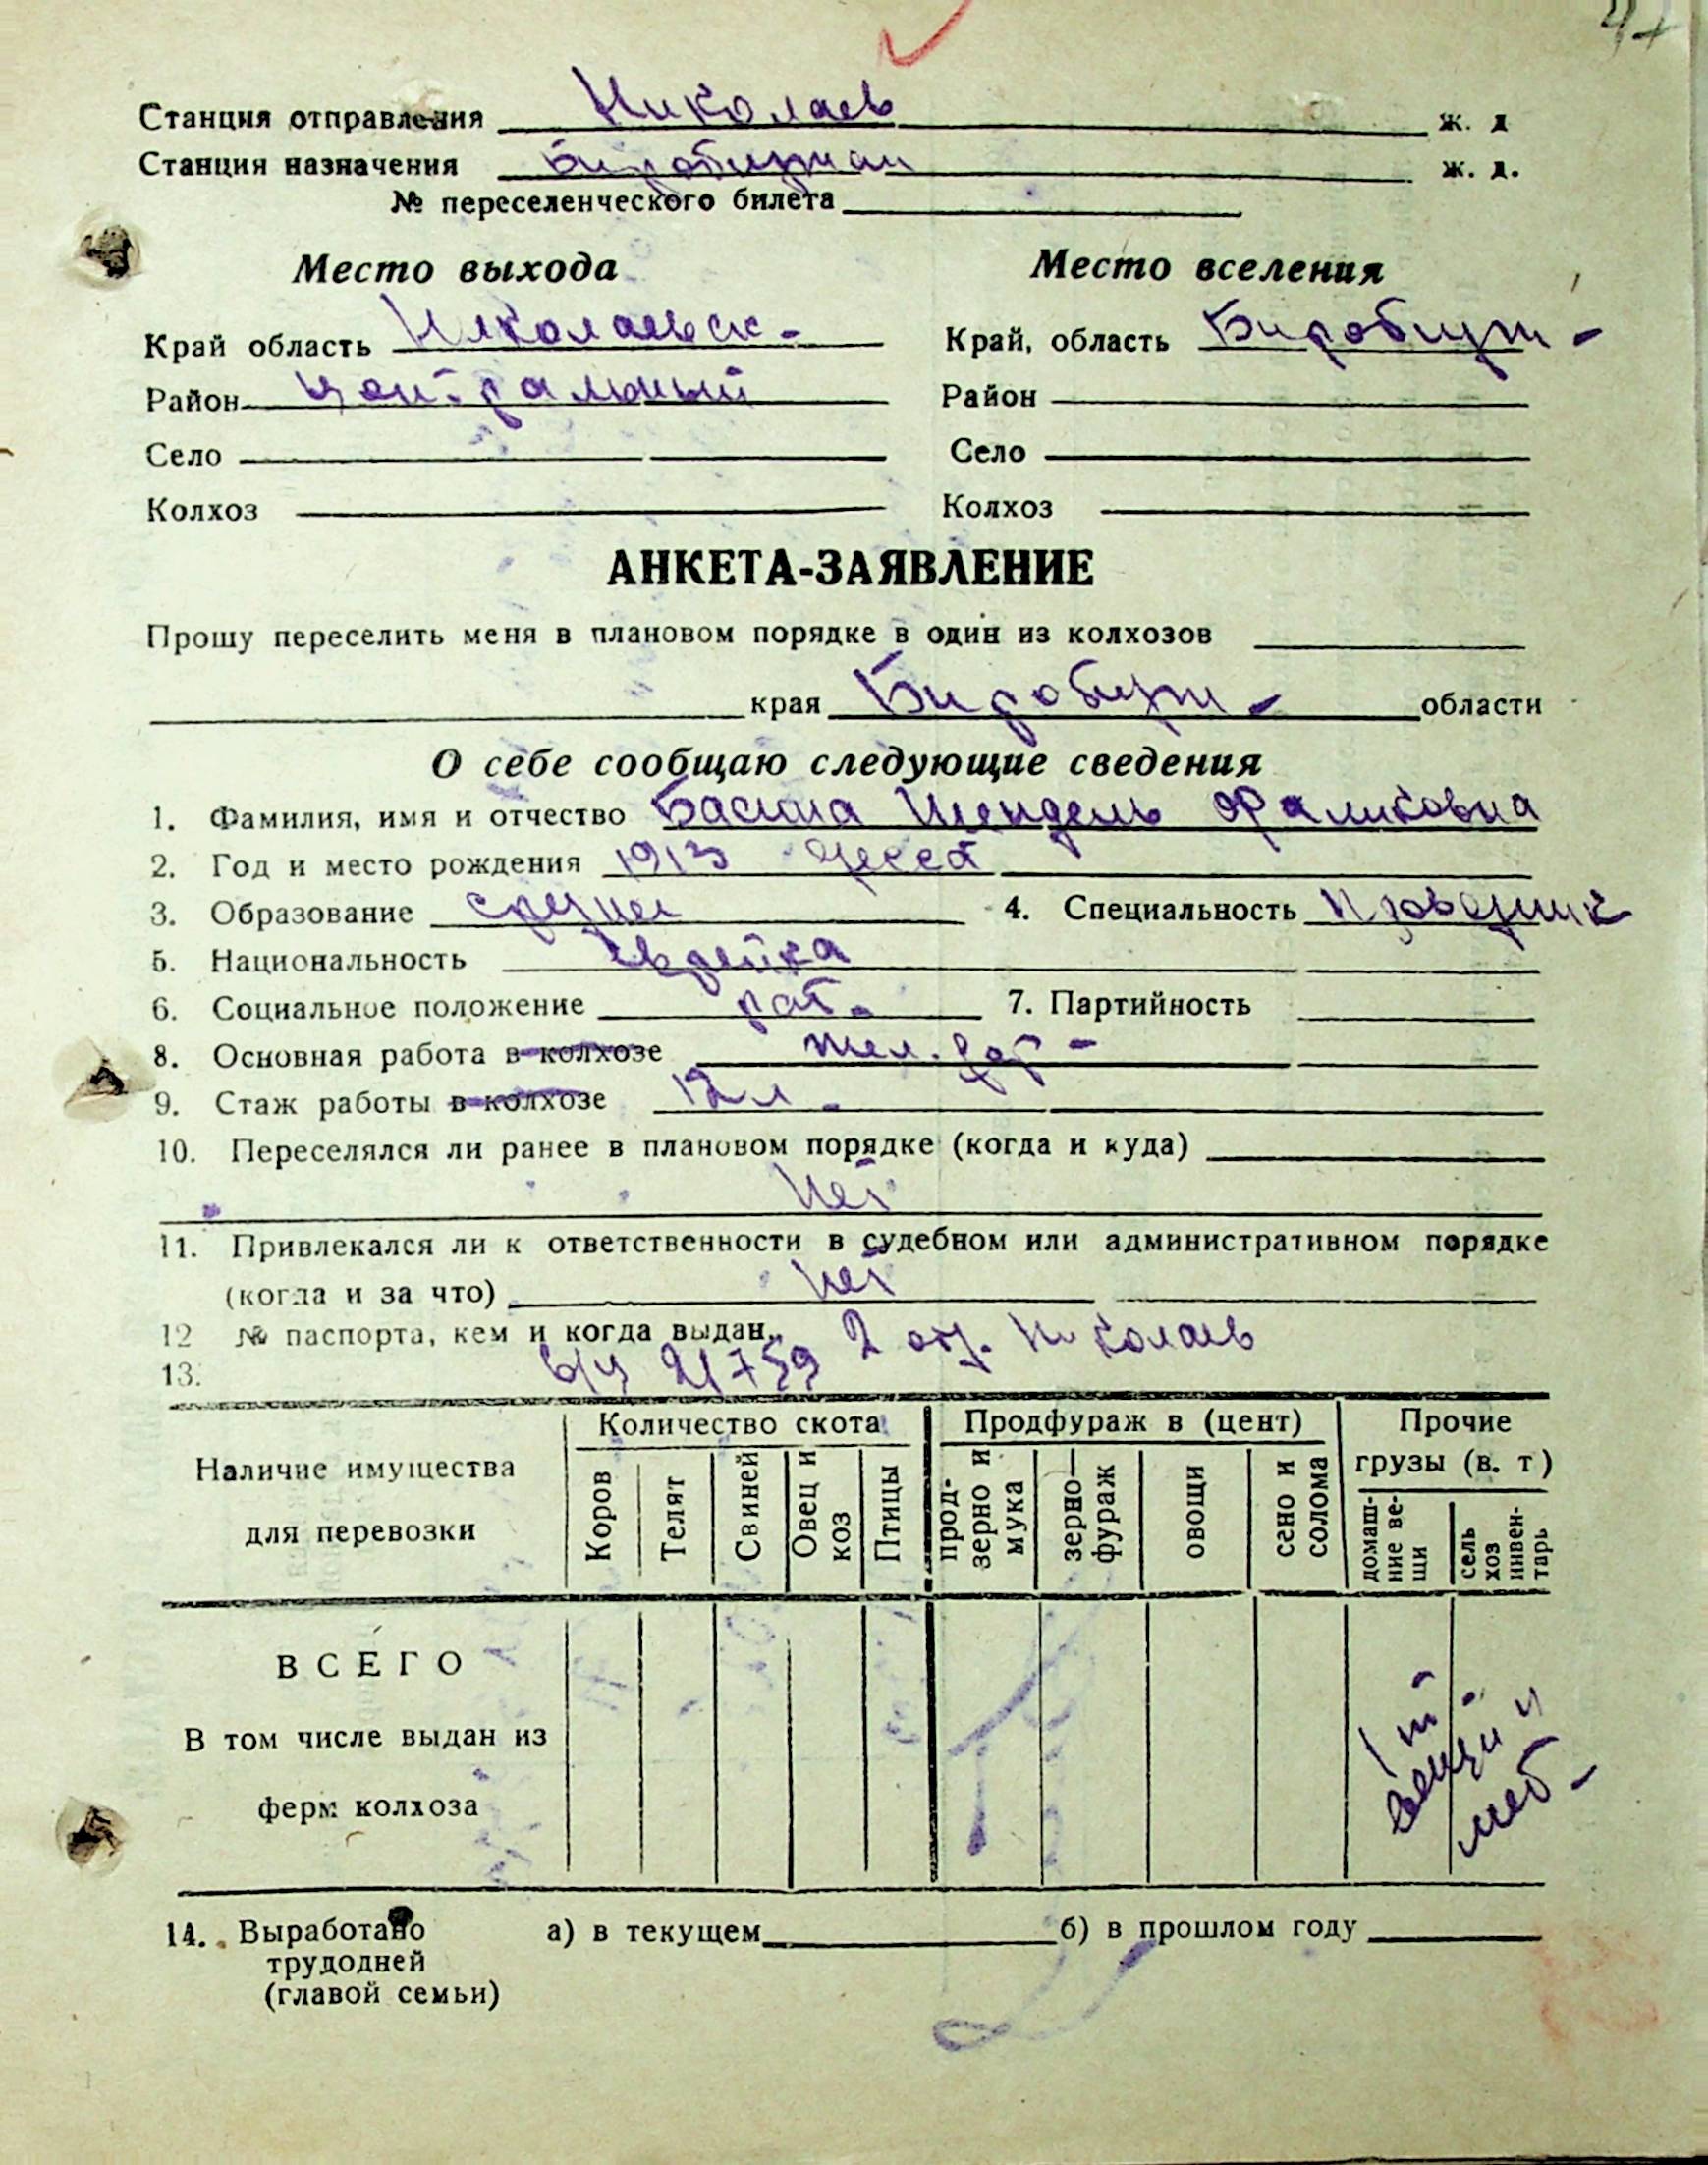 Станция отправления Николаев ж. д
Станция назначения Биробиджан ж. д.
№ переселенческого билета
Место выхода
Место вселения
Край область Николаевск-
Край, область Биробидж-
Район Центральный
Район
Село
Село
Колхоз
Колхоз
АНКЕТА-ЗАЯВЛЕНИЕ
Прошу переселить меня в плановом порядке в один из колхозов
края Биробидж- области
О себе сообщаю следующие сведения
1. Фамилия, имя и отчество Басина Шендель Фраликовна
2. Год и место рождения 1913 Одесса
3. Образование среднее 4. Специальность проводник
5. Национальность еврейка
6. Социальное положение раб. 7. Партийность
8. Основная работа в колхозе жел. дор-
9. Стаж работы в колхозе 12 л.
10. Переселялся ли ранее в плановом порядке (когда и куда)
Нет
11. Привлекался ли к ответственности в судебном или административном порядке
(когда и за что) Нет
12 № паспорта, кем и когда выдан 2 отд. Николаев
13. 21759
Наличие имущества для перевозки
Количество скота
Продфураж в (цент)
Прочие грузы (в. т)
Коров
Телят
Свиней
Овец и коз
Птицы
прод-зерно и мука
зерно—фураж
овощи
сено и солома
домаш-ние ве-щи
сель хоз инвен-тарь
ВСЕГО
В том числе выдан из
ферм колхоза
1 т.
вещей и
меб-
14. Выработано а) в текущем б) в прошлом году
трудодней
(главой семьи)